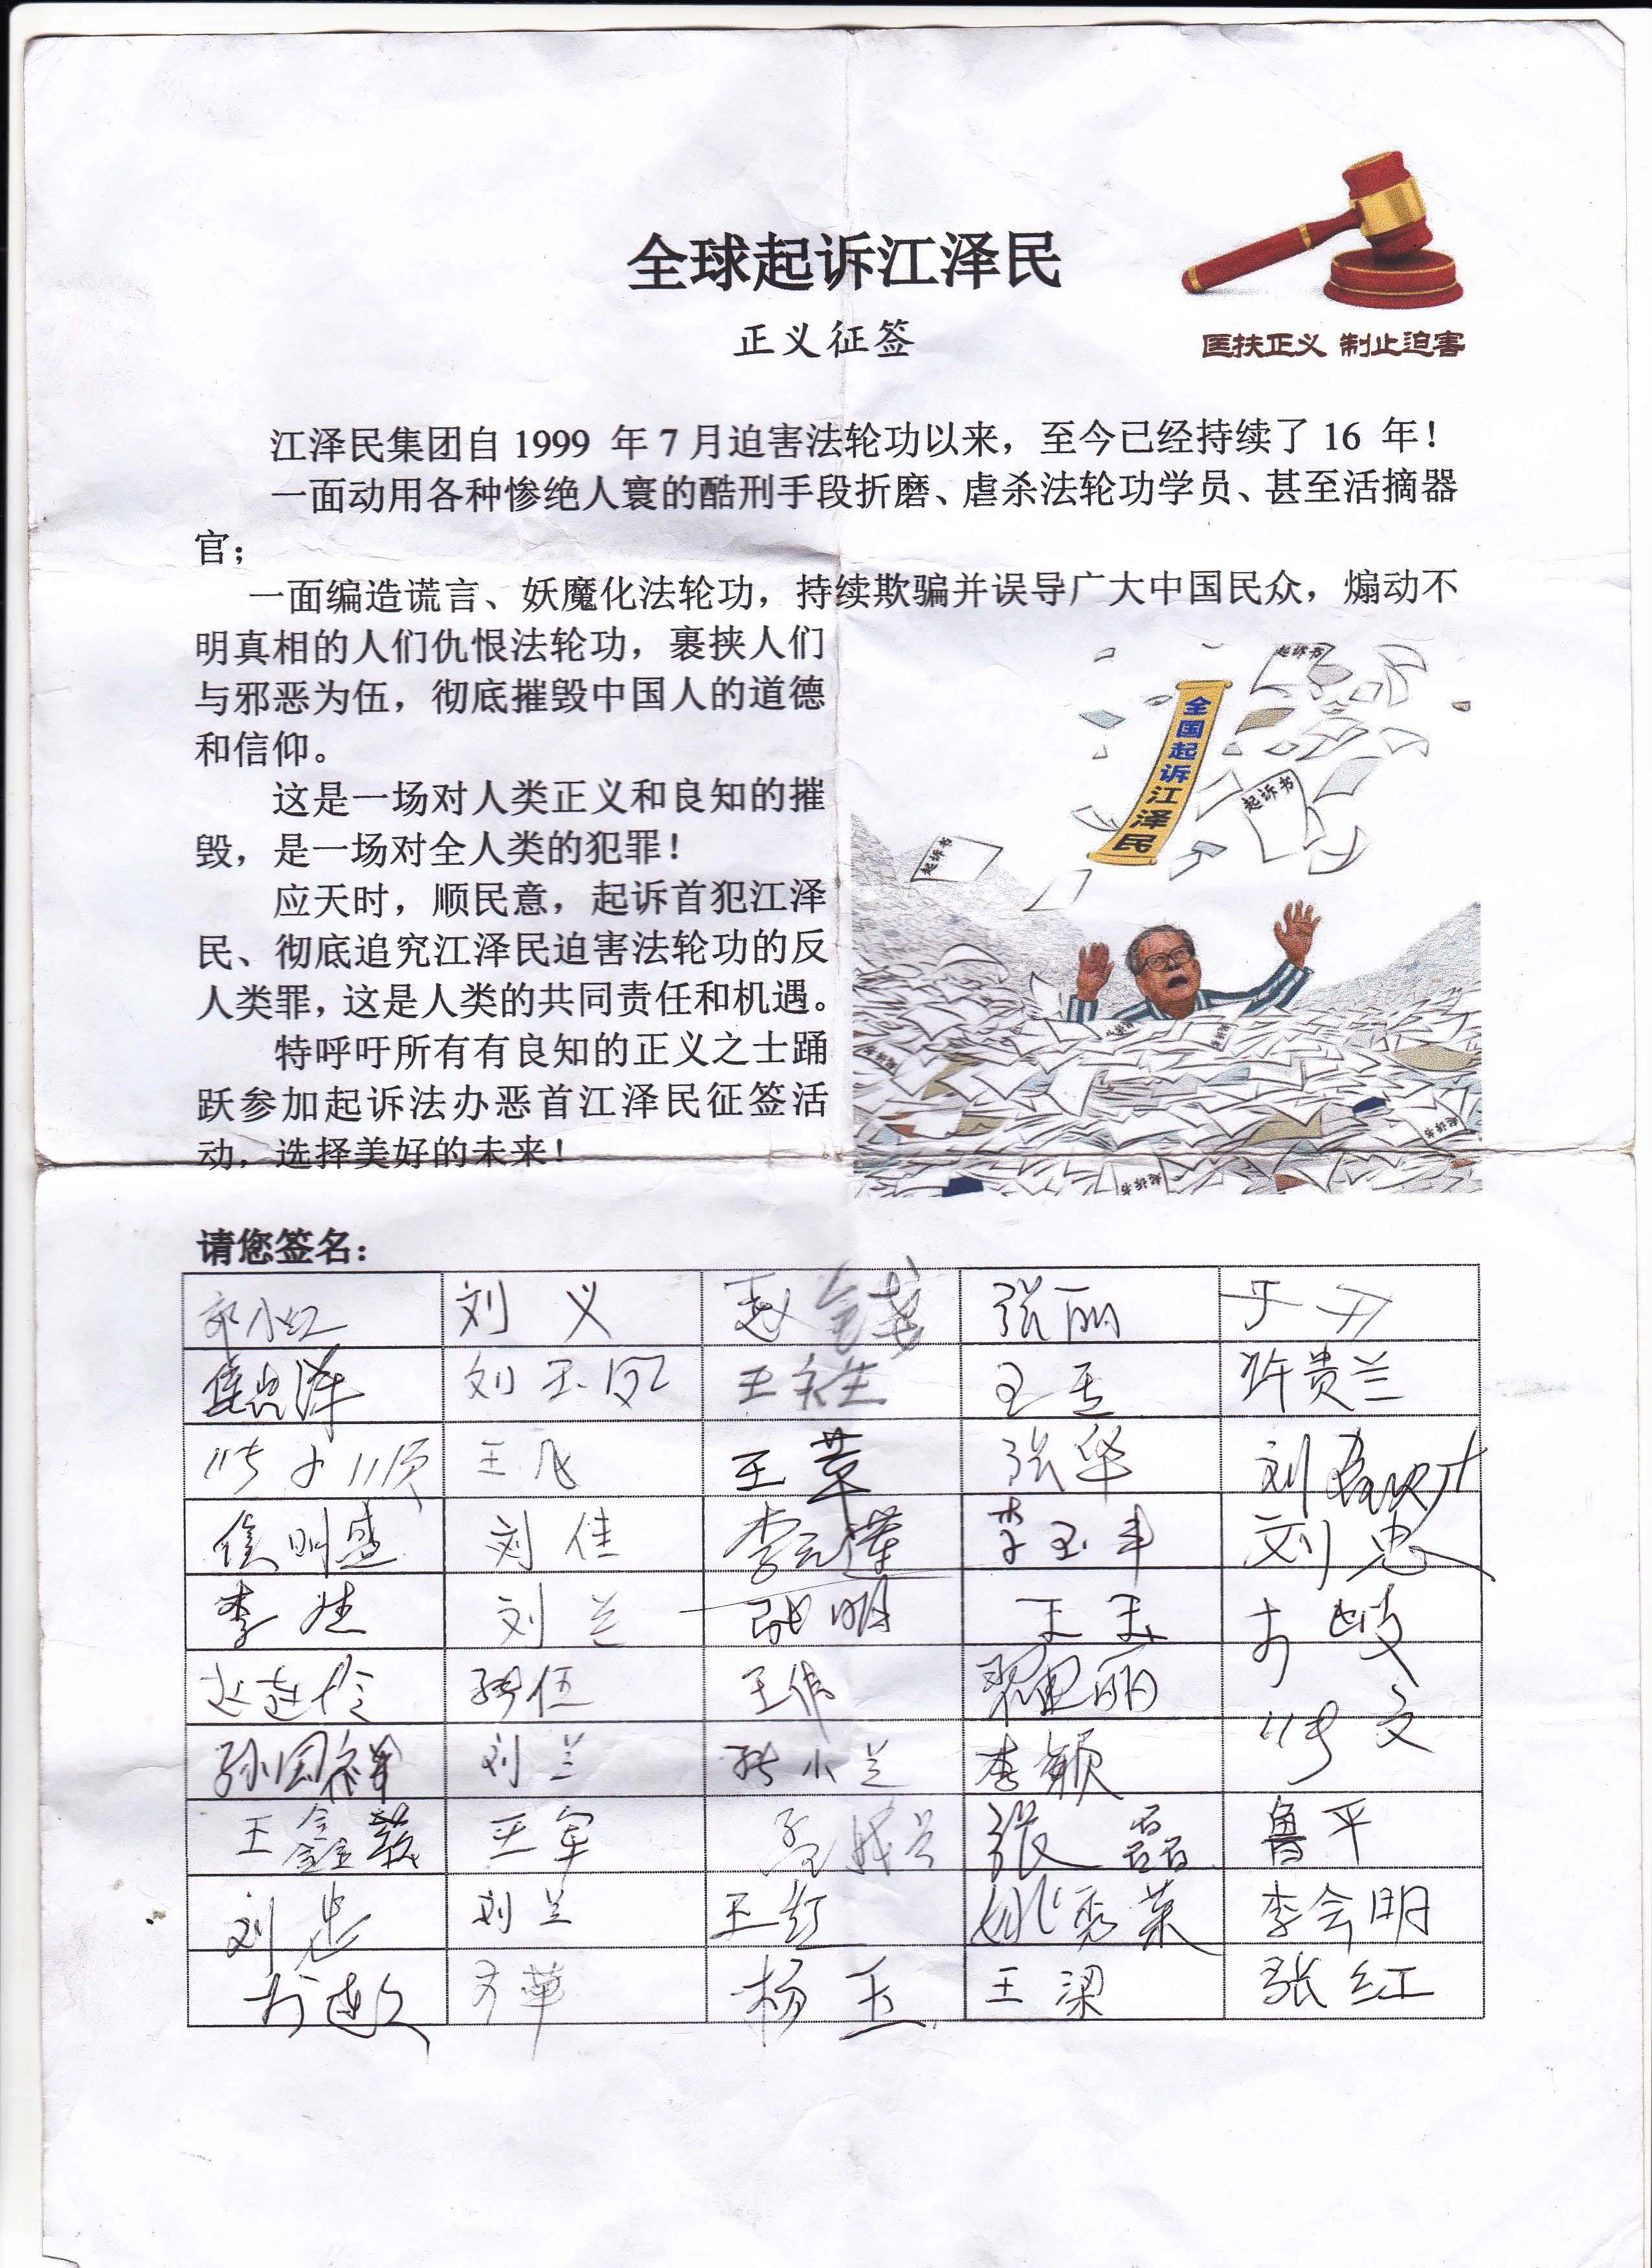 全球起诉江泽民
正义征签
匡扶正义 制止迫害
江泽民集团自 1999 年 7 月迫害法轮功以来，至今已经持续了 16 年！
一面动用各种惨绝人寰的酷刑手段折磨、虐杀法轮功学员、甚至活摘器
官；
一面编造谎言、妖魔化法轮功，持续欺骗并误导广大中国民众，煽动不
明真相的人们仇恨法轮功，裹挟人们
与邪恶为伍，彻底摧毁中国人的道德
和信仰。
这是一场对人类正义和良知的摧
毁，是一场对全人类的犯罪！
应天时，顺民意，起诉首犯江泽
民、彻底追究江泽民迫害法轮功的反
人类罪，这是人类的共同责任和机遇。
特呼吁所有有良知的正义之士踊
跃参加起诉法办恶首江泽民征签活
动，选择美好的未来！
起诉书
全国起诉江泽民
起诉书
起诉书
起诉书
起诉书
请您签名：
刘义 张丽
刘玉凤 许贵兰
王飞 王苹 张华 刘
侯明盛 刘佳 李玉丰 刘忠
李 刘兰 张明 王玉
张伍 王伟 丽
孙国祥 刘兰 张小兰 李颖 文
王鑫 王军 张磊 鲁平
刘忠 刘兰 王红 姚秀荣 李会明
杨玉 王梁 张红